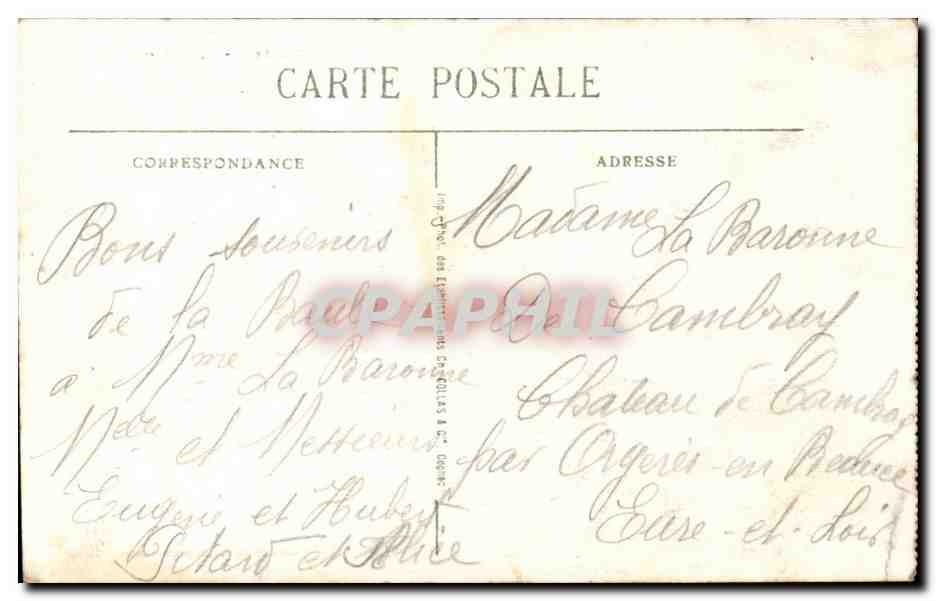 CARTE POSTALE
CORRESPONDANCE
Bons souvenirs
de la Baule
a Mme La Baronne
Melle et Messieurs
Eugène et Hubert
et Alice
Imp. Phot. des Etablissements Ch. COLLAS & Cie Cognac
ADRESSE
Madame La Baronne
De Cambray
Chateau de Cambray
par Orgeres-en Beauce
Eure-et-Loir
CPAPHIL